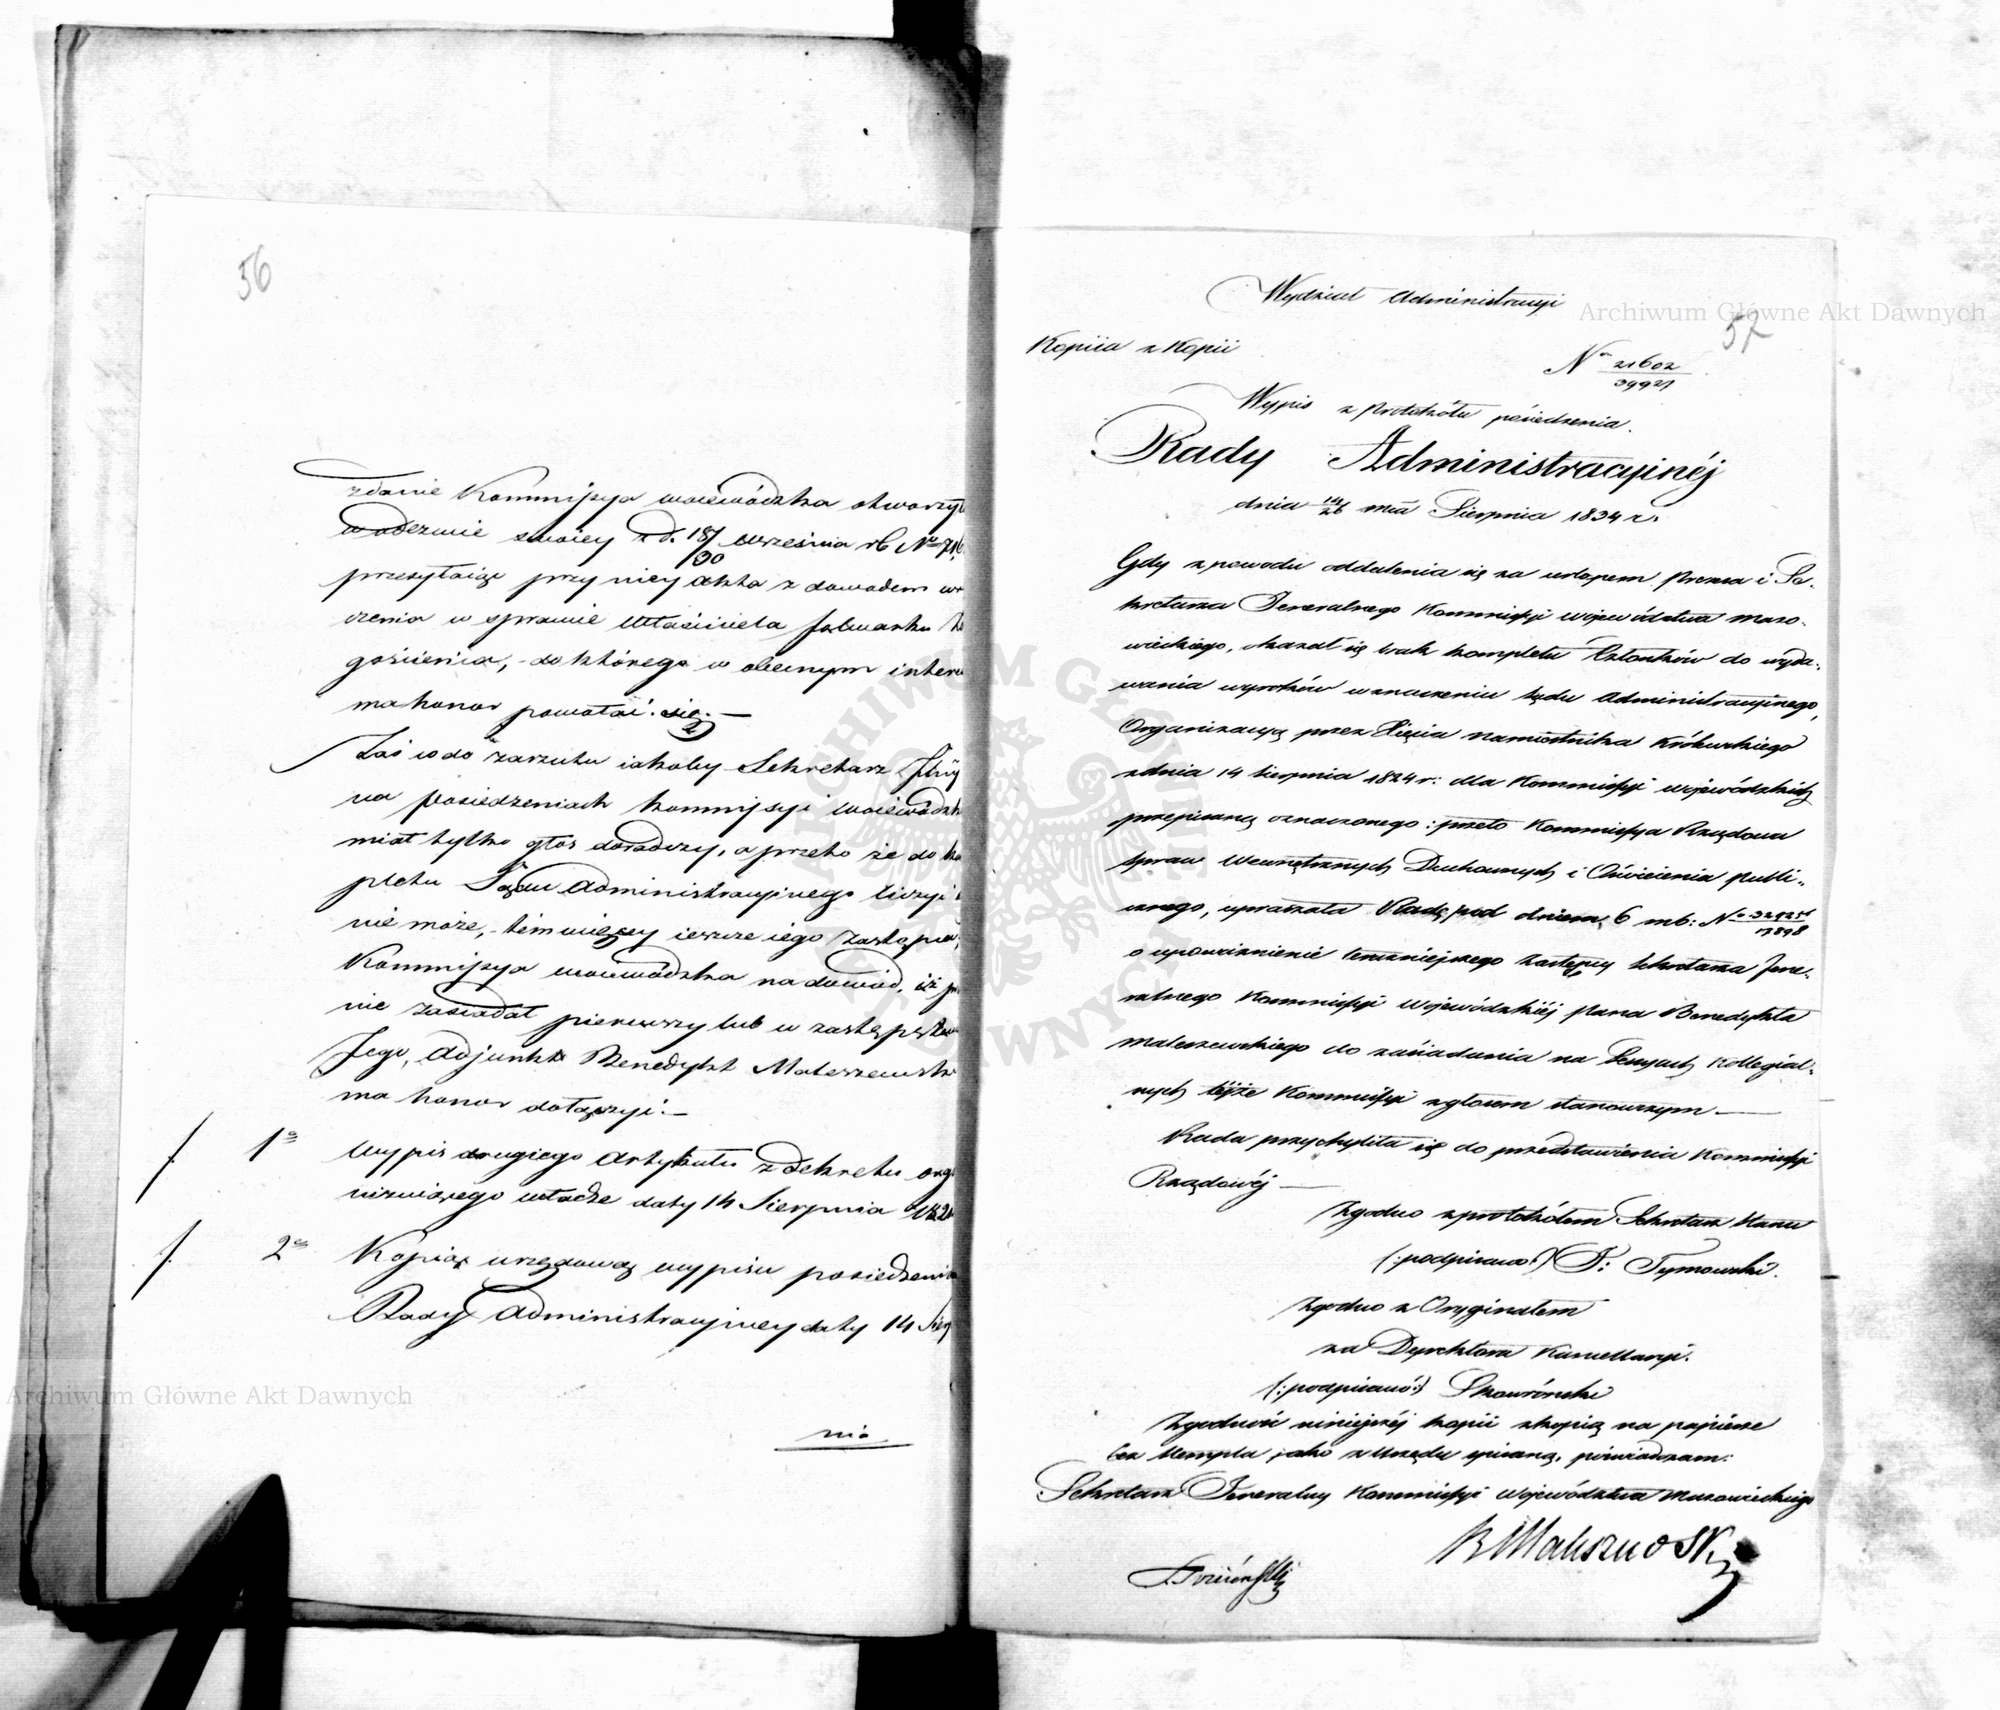 56
zdanie Kommissya woiewódzka otworzył
w odezwie swoiey z d. 18/30 Września rb No
przesyłaiąc przy niey akta z dowodem wr
czenia w sprawie Właściciela folwarku
gościenia, do którego w obecnym intere
ma honor powołać się.—
Zaś co do zarzutu iakoby Sekretarz
na posiedzeniach Kommissyi woiewódzk
miał tylko głos doradczy, a przeto że do ko
pletu Sądu Administracyjnego liczyć
nie może, tem więcey ieszcze iego Zastępca,
Kommissya woiewódzka na dowód, iż
nie zasiadał pierwszy lub w zastępstwie
Jego, Adjunkt Benedykt Maleszewsk
ma honor dołączyć.—
1o Wypis drugiego Artykułu z Dekretu org
nizuiącego władze daty 14 Sierpnia 182
2o Kopią urzędową wypisu posiedzenia
Rady Administracyjney daty 14 Sierp
nia
Archiwum Główne Akt Dawnych
57
Wydział Administracyi
Archiwum Główne Akt Dawnych
Kopiia z Kopii
No 21602/39921
Wypis z Protokółu posiedzenia.
Rady Administracyjnéj
dnia 14/26 mca Sierpnia 1834 r.
Gdy z powodu oddalenia się za urlopem Prezesa i Se-
kretarza Jeneralnego Kommissyi Województwa Mazo-
wieckiego, okazał się brak kompletu Członków do wyda-
wania wyroków w znaczeniu Sądu Administracyjnego,
Organizacyą przez Xięcia Namiestnika Królewskiego
z dnia 14 Sierpnia 1824 r: dla Kommissyi Wojewódzkich
przepisaną oznaczonego: przeto Kommissya Rządowa
Spraw Wewnętrznych Duchownych i Oświecenia Publi-
cznego, upraszała Radę pod dniem 6 mb: No
o upoważnienie teraźniejszego Zastępcy Sekretarza Jene-
ralnego Kommissyi Wojewódzkiéj Pana Benedykta
Maleszewskiego do zasiadania na Sessyach Kollegial-
nych tejże Kommissyi z głosem stanowczym —
Rada przychyliła się do przedstawienia Kommissyi
Rządowéj —
Zgodno z protokółem Sekretarz Stanu
(:podpisano:) J: Tymowski.
Zgodno z Oryginałem
za Dyrektora Kancellaryi.
(:podpisano:) Skowroński
Zgodność niniejszéj kopii z kopią na papierze
bez stempla jako z Urzędu spisaną, poświadczam:
Sekretarz Jeneralny Kommissyi Województwa Mazowieckiego
B Maleszewski
ARCHIWUM GŁÓWNE AKT DAWNYCH